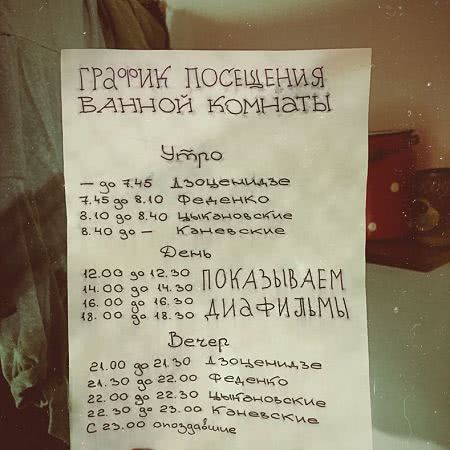 ГРАФИК ПОСЕЩЕНИЯ
ВАННОЙ КОМНАТЫ
Утро
— до 7.45 Дзоценидзе
7.45 до 8.10 Феденко
8.10 до 8.40 Цыкановские
8.40 до — Каневские
День
12.00 до 12.30 ПОКАЗЫВАЕМ
14.00 до 14.30 ДИАФИЛЬМЫ
16.00 до 16.30
18.00 до 18.30
Вечер
21.00 до 21.30 Дзоценидзе
21.30 до 22.00 Феденко
22.00 до 22.30 Цыкановские
22.30 до 23.00 Каневские
С 23.00 опоздавшие